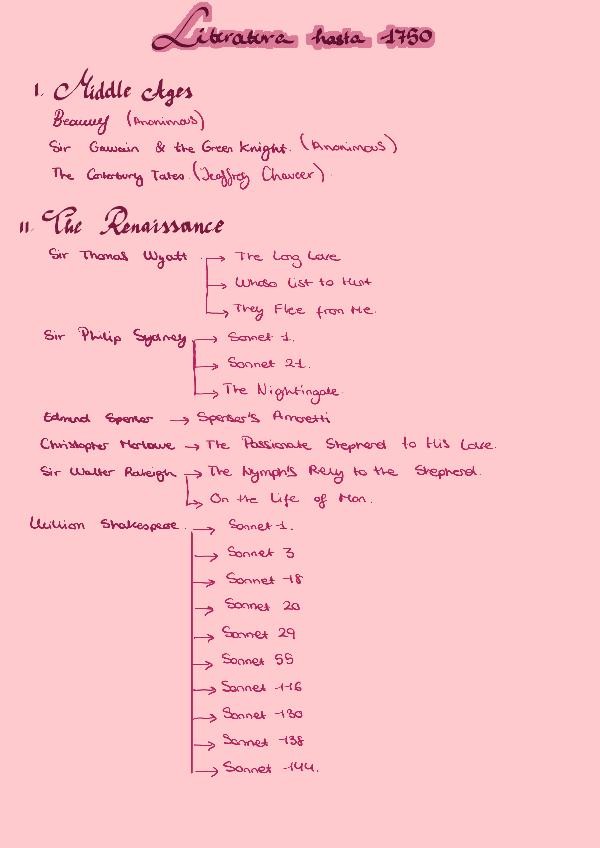 Literatura hasta 1750
I. Middle Ages
(Anonimous)
Sir Gawain & the Green Knight. (Anonimous)
The Canterbury Tales. (Jeoffrey Chaucer).
II. The Renaissance
Sir Thomas Wyatt → The Long Love
→ Whoso List to Hunt
→ They Flee from Me.
Sir Philip Sydney → Sonnet 1.
→ Sonnet 21.
→ The Nightingale.
Edmund Spenser → Spenser's Amoretti
Christopher Marlowe → The Passionate Shepherd to His Love.
Sir Walter Raleigh → The Nymph's Reply to the Shepherd.
→ On the Life of Man.
William Shakespeare. → Sonnet 1.
→ Sonnet 3
→ Sonnet 18
→ Sonnet 20
→ Sonnet 29
→ Sonnet 55
→ Sonnet 116
→ Sonnet 130
→ Sonnet 138
→ Sonnet 144.